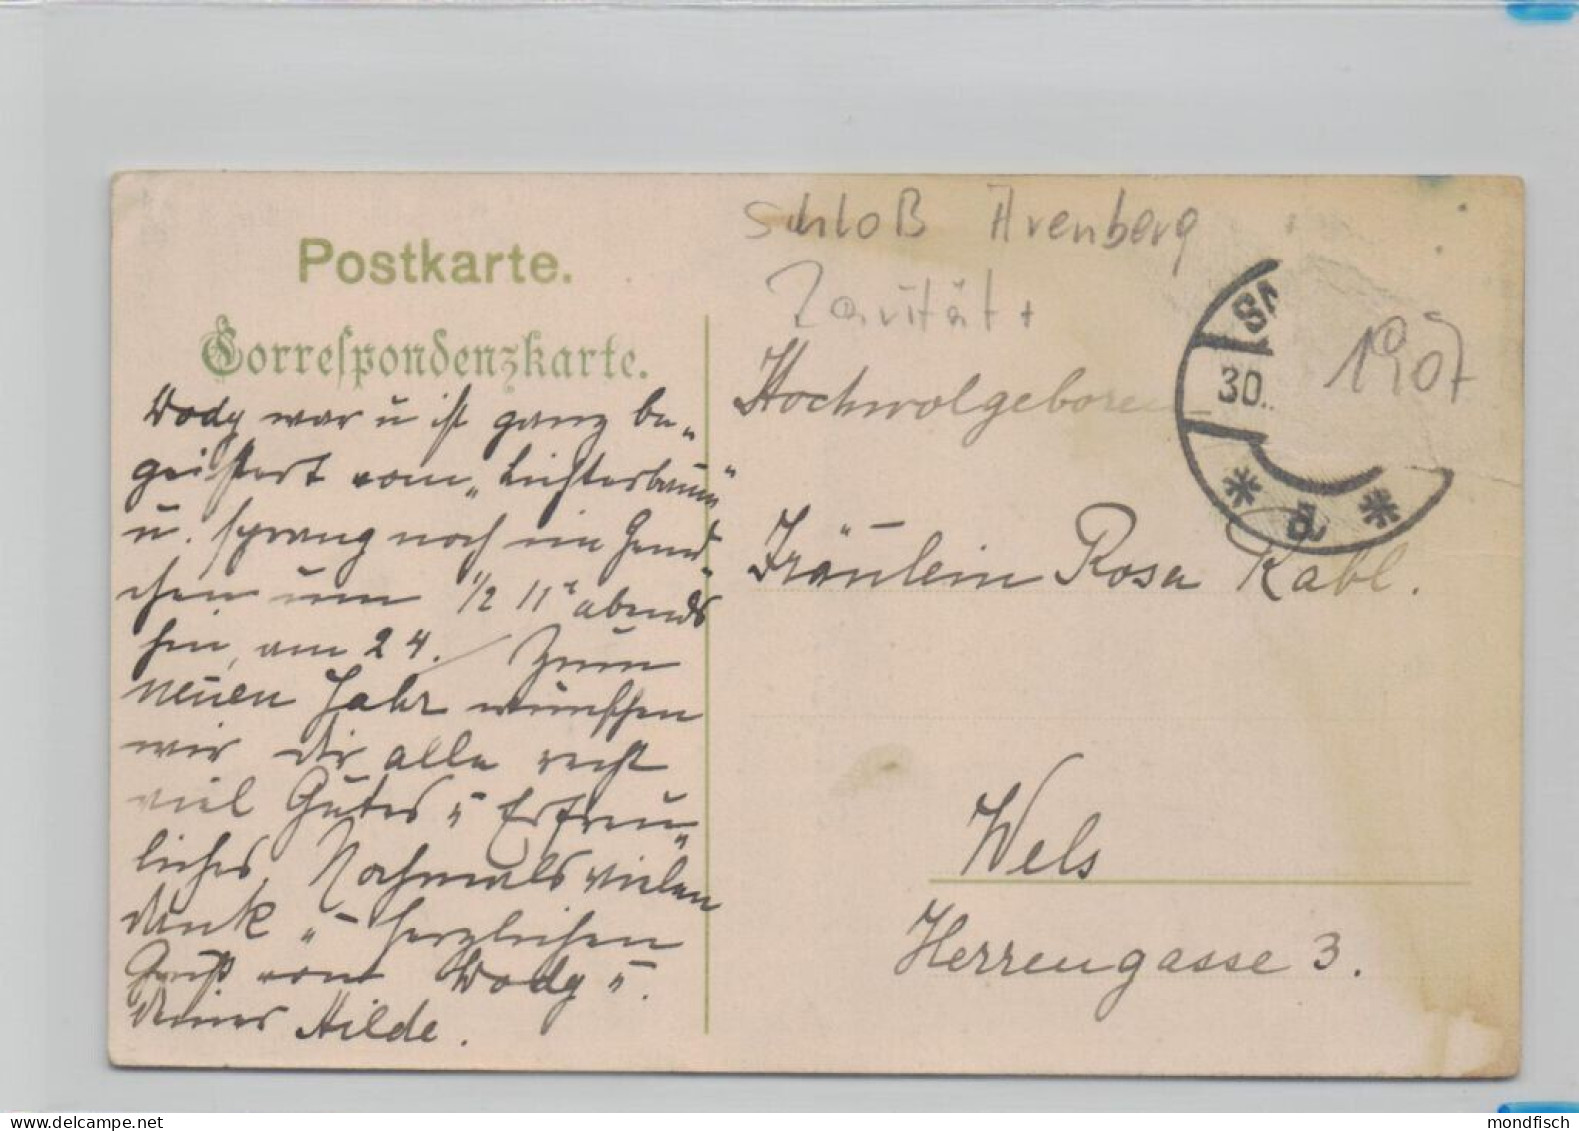 Schloß Arenberg
Rarität +
Postkarte.
Correspondenzkarte.
Dody war u ist ganz be„
geistert vom „Lichterbaum“
u. sprang noch im Hemd„
chen um 1/2 11h abends
hin, am 24. Zum
neuen Jahr wünschen
wir Dir alle recht
viel Gutes u Erfreu„
liches. Nochmals vielen
Dank u herzlichen
Gruß von Dody u.
Deiner Hilde.
SA
30.
1907
* d *
Hochwolgeboren
Fräulein Rosa Kabl.
Wels
Herrengasse 3.
mondfisch